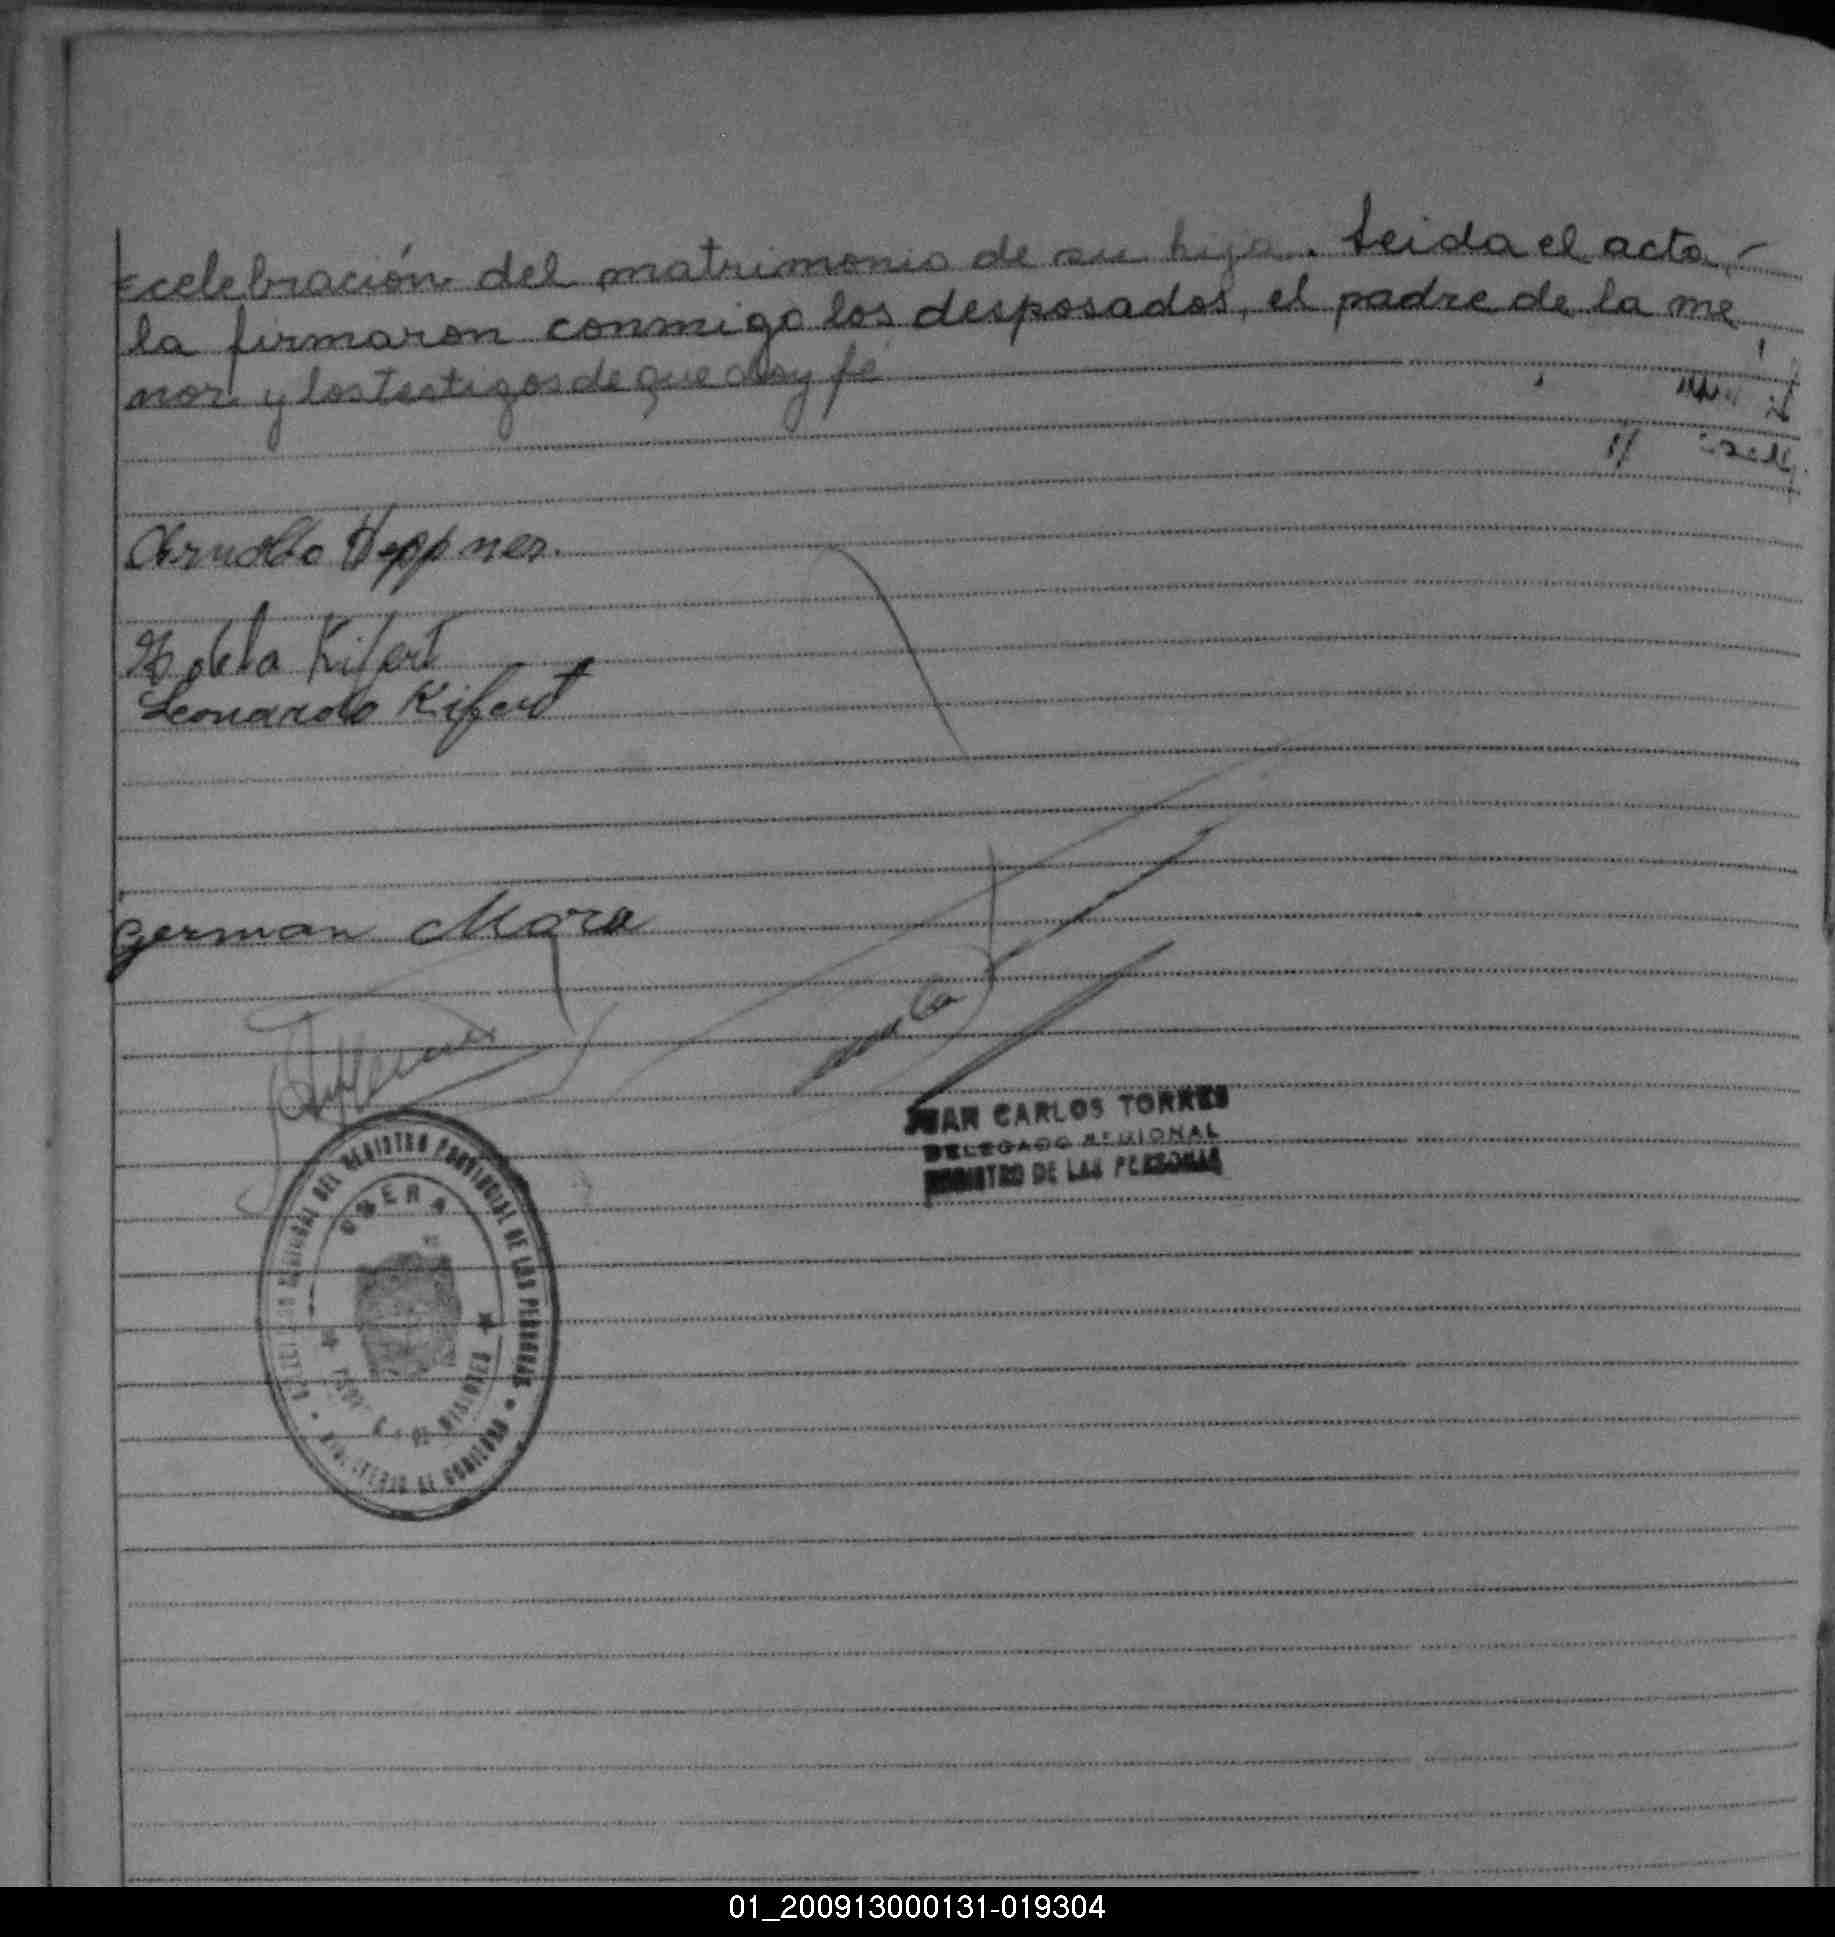 celebración del matrimonio de su hija. Leida el acta,-
la firmaron conmigo los desposados, el padre de la me
nor y los testigos de que doy fé
Arnoldo Heppner
Kifert
Leonardo Kifert
German Mora
JUAN CARLOS TORRES
DELEGADO REGIONAL
REGISTRO DE LAS PERSONAS
REGIONAL DEL REGISTRO PROVINCIAL DE LAS PERSONAS
OBERA
DE MISIONES
MINISTERIO DE GOBIERNO
01_200913000131-019304